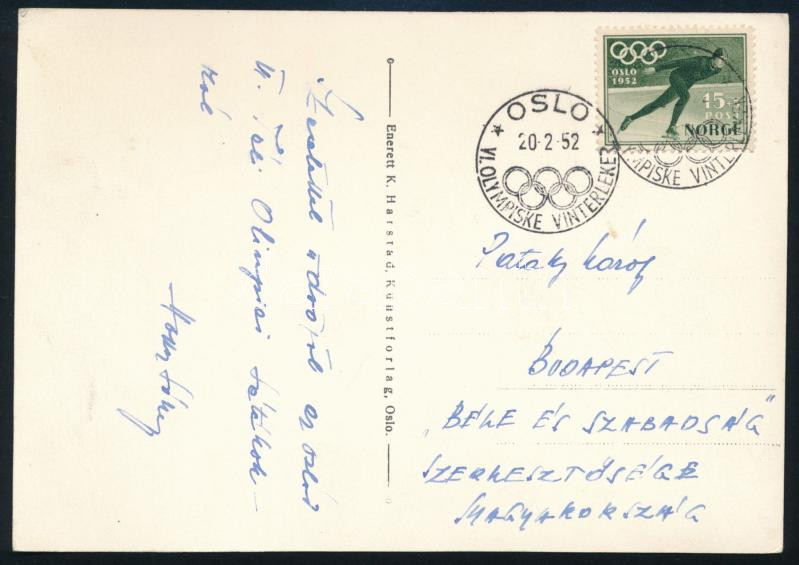 Szeretettel üdvözöl az oslói
VI. Téli Olimpiai Játékok-
ról
Enerett K. Harstad, Kunstforlag, Oslo.
OSLO
1952
15+
POST
NORGE
OSLO
20-2-52
VI. OLYMPISKE VINTERLEKER
OLYMPISKE VINTERLEKER
Pataky Károly
BUDAPEST
„BÉKE ÉS SZABADSÁG"
SZERKESZTŐSÉGE
MAGYARORSZÁG